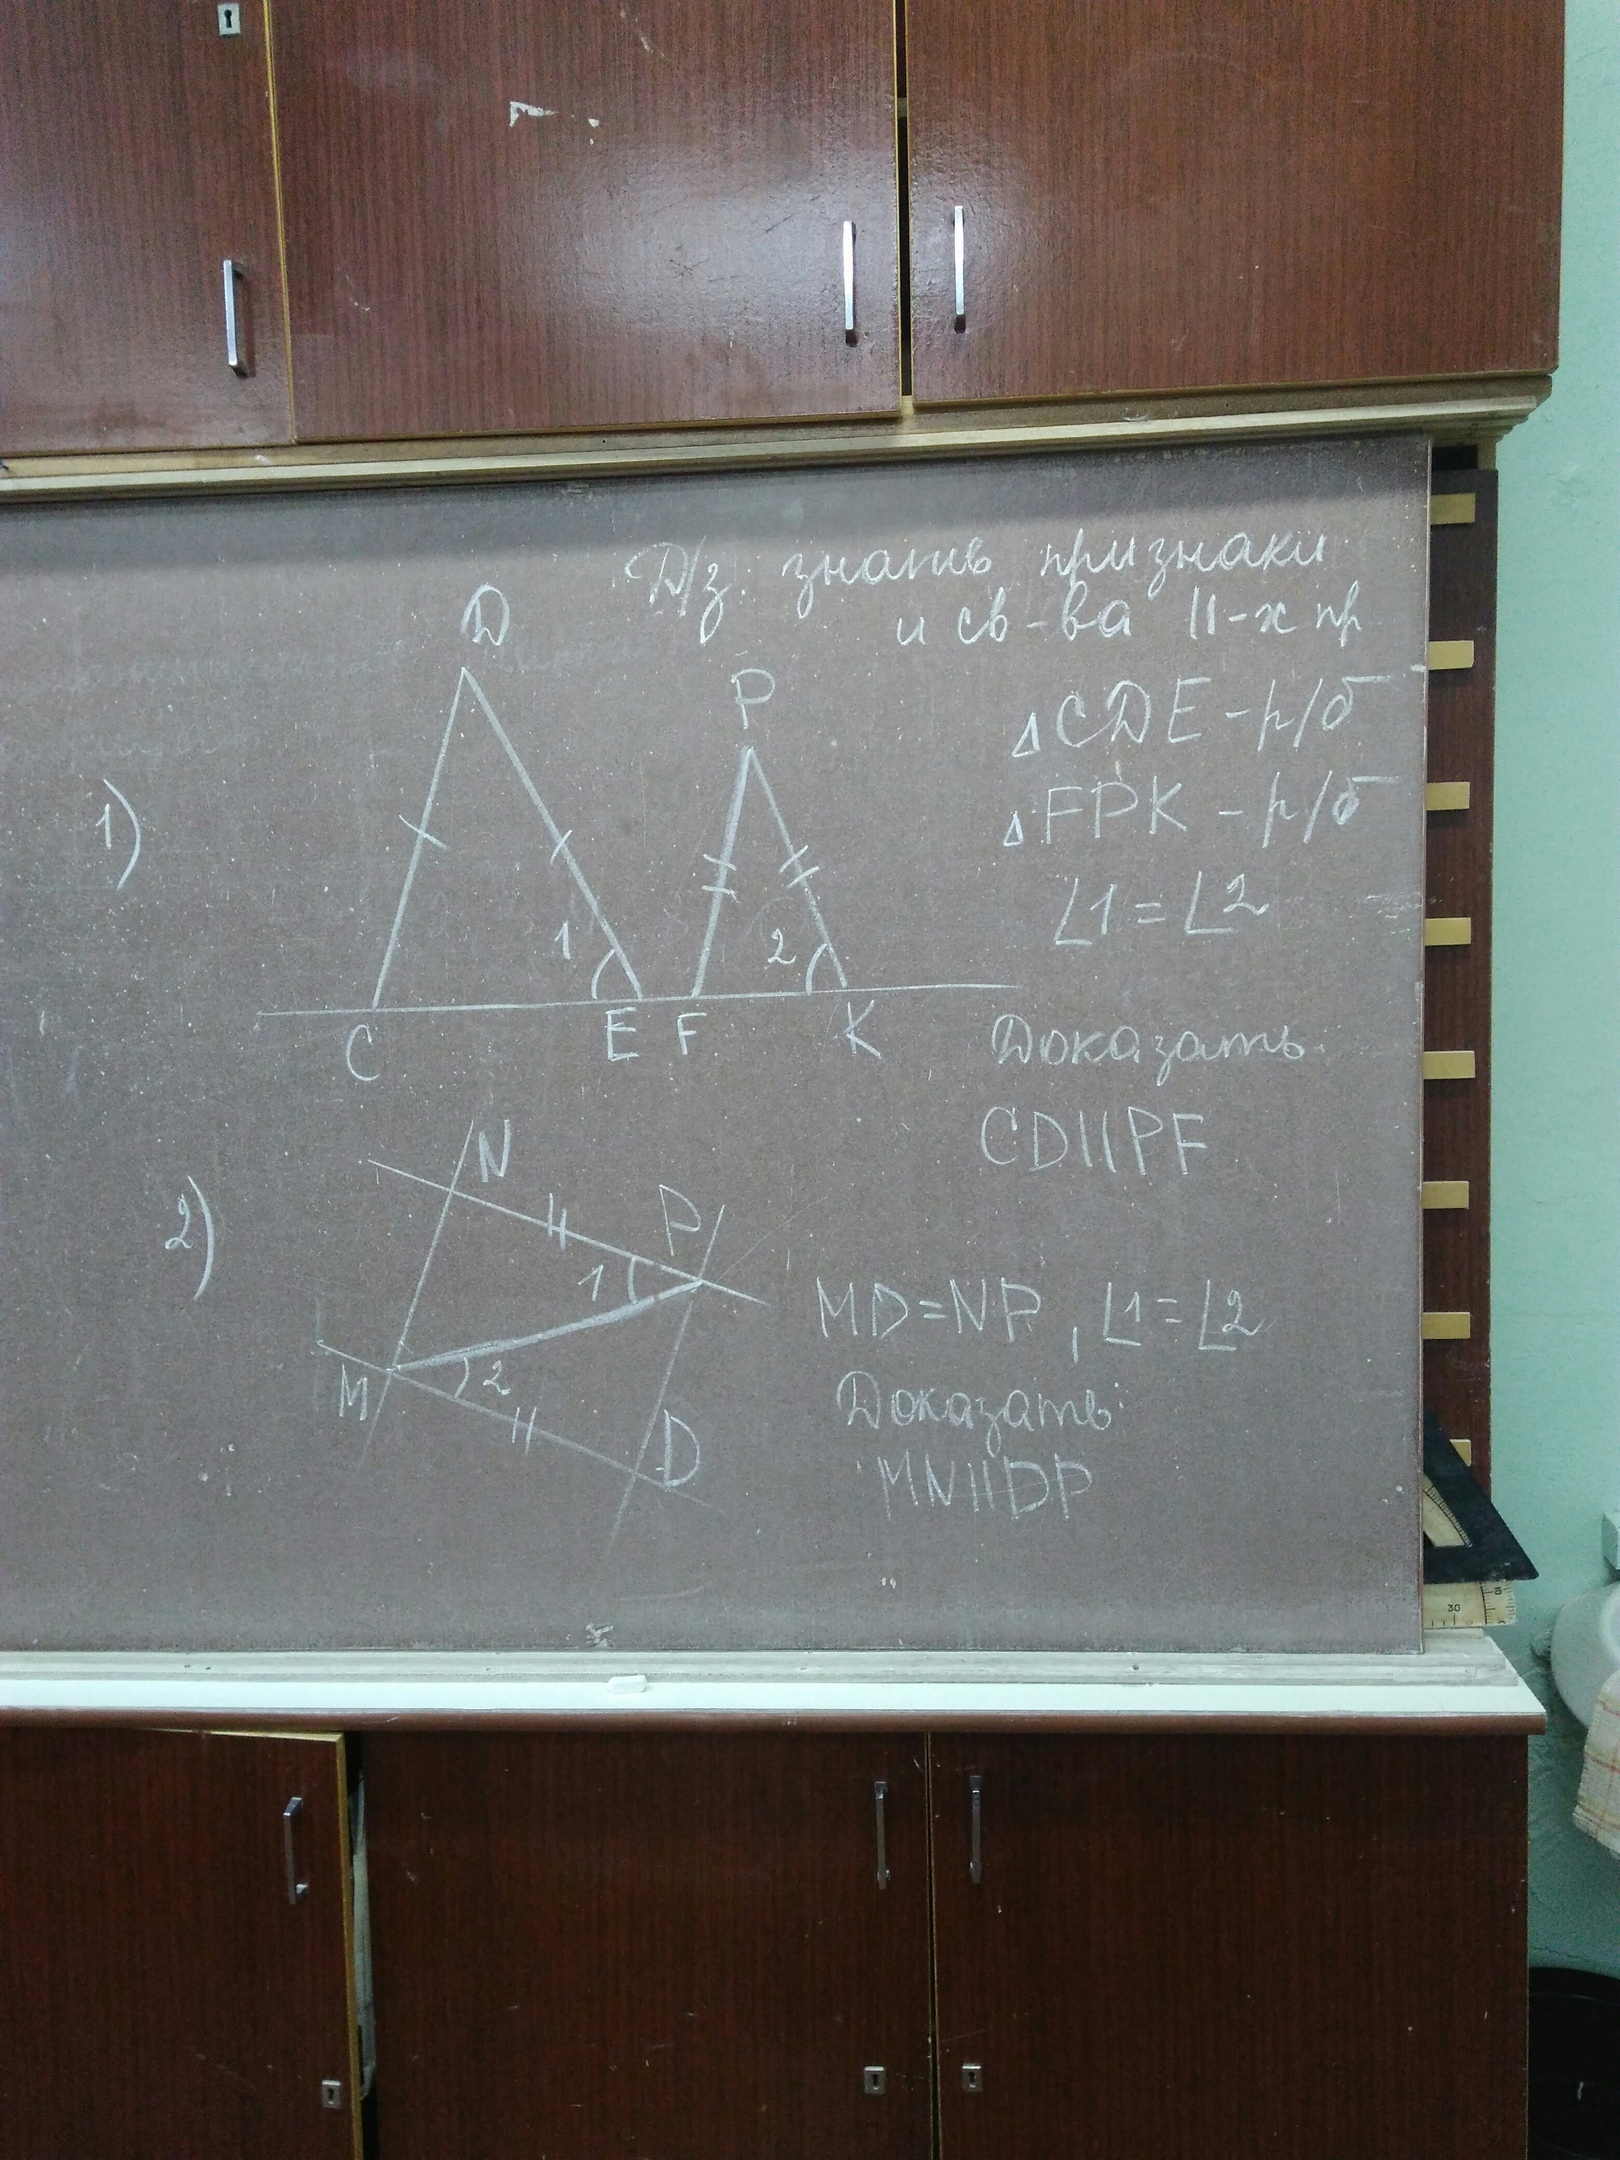 Д/з. знать признаки
и св-ва ||-х пр
1)
D
P
△CDE - р/б
△FPK - р/б
∠1 = ∠2
1
2
C E F K
Доказать
CD||PF
2)
N
P
1
2
M
D
MD=NP, ∠1=∠2
Доказать:
MN||DP
30